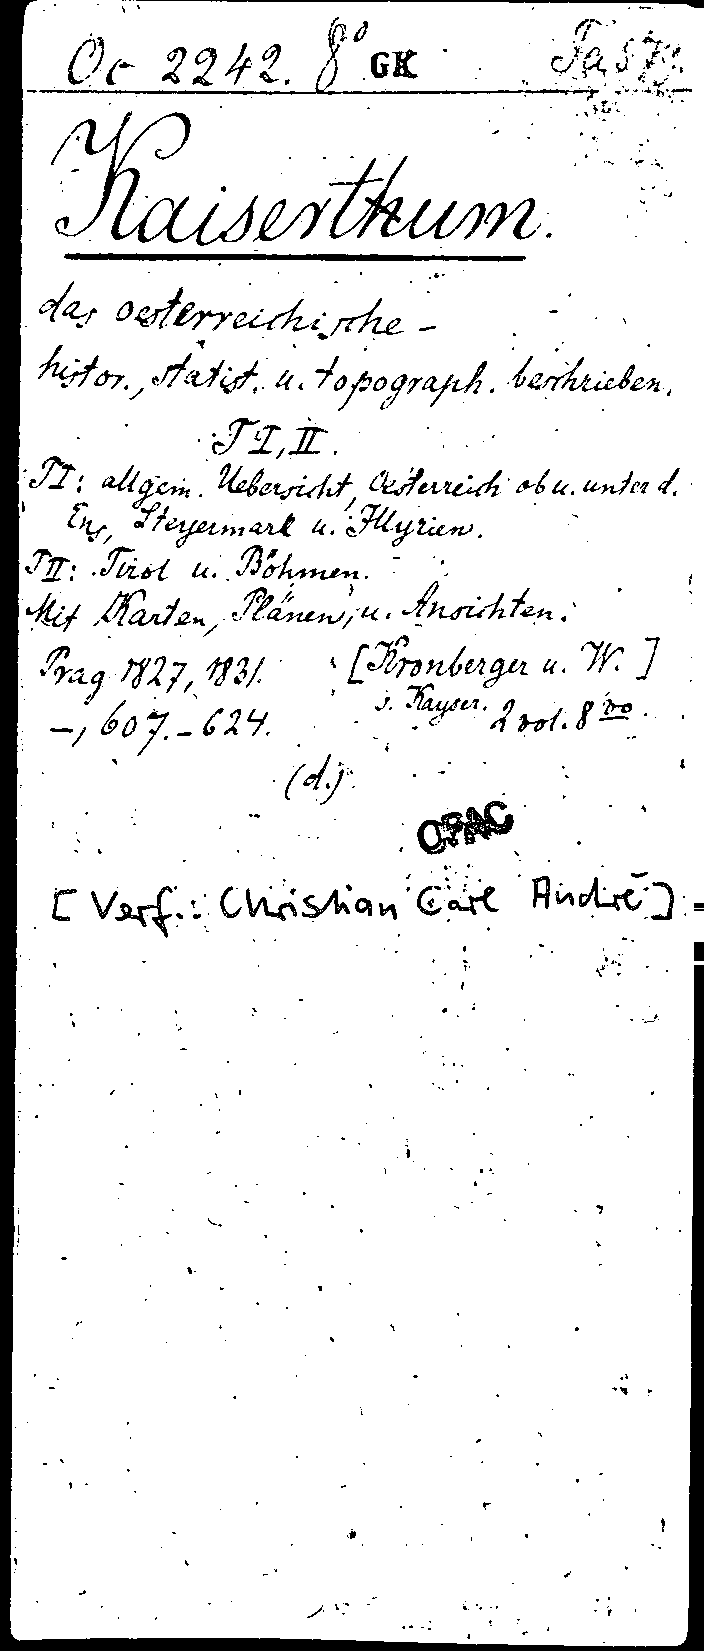 Oc 2242. 8° GK
Kaiserthum.
das oesterreichische –
histor., statist. u. topograph. beschrieben.
T I, II.
T I: allgem. Uebersicht, Oesterreich ob u. unter d.
Ens, Steyermark u. Illyrien.
T II: Tirol u. Böhmen.
Mit Karten, Plänen, u. Ansichten.
Prag 1827, 1831. [Kronberger u. W.]
s. Kayser. 2 vol. 8vo.
–, 607. – 624.
(d.)
OPAC
[Verf.: Christian Carl André]